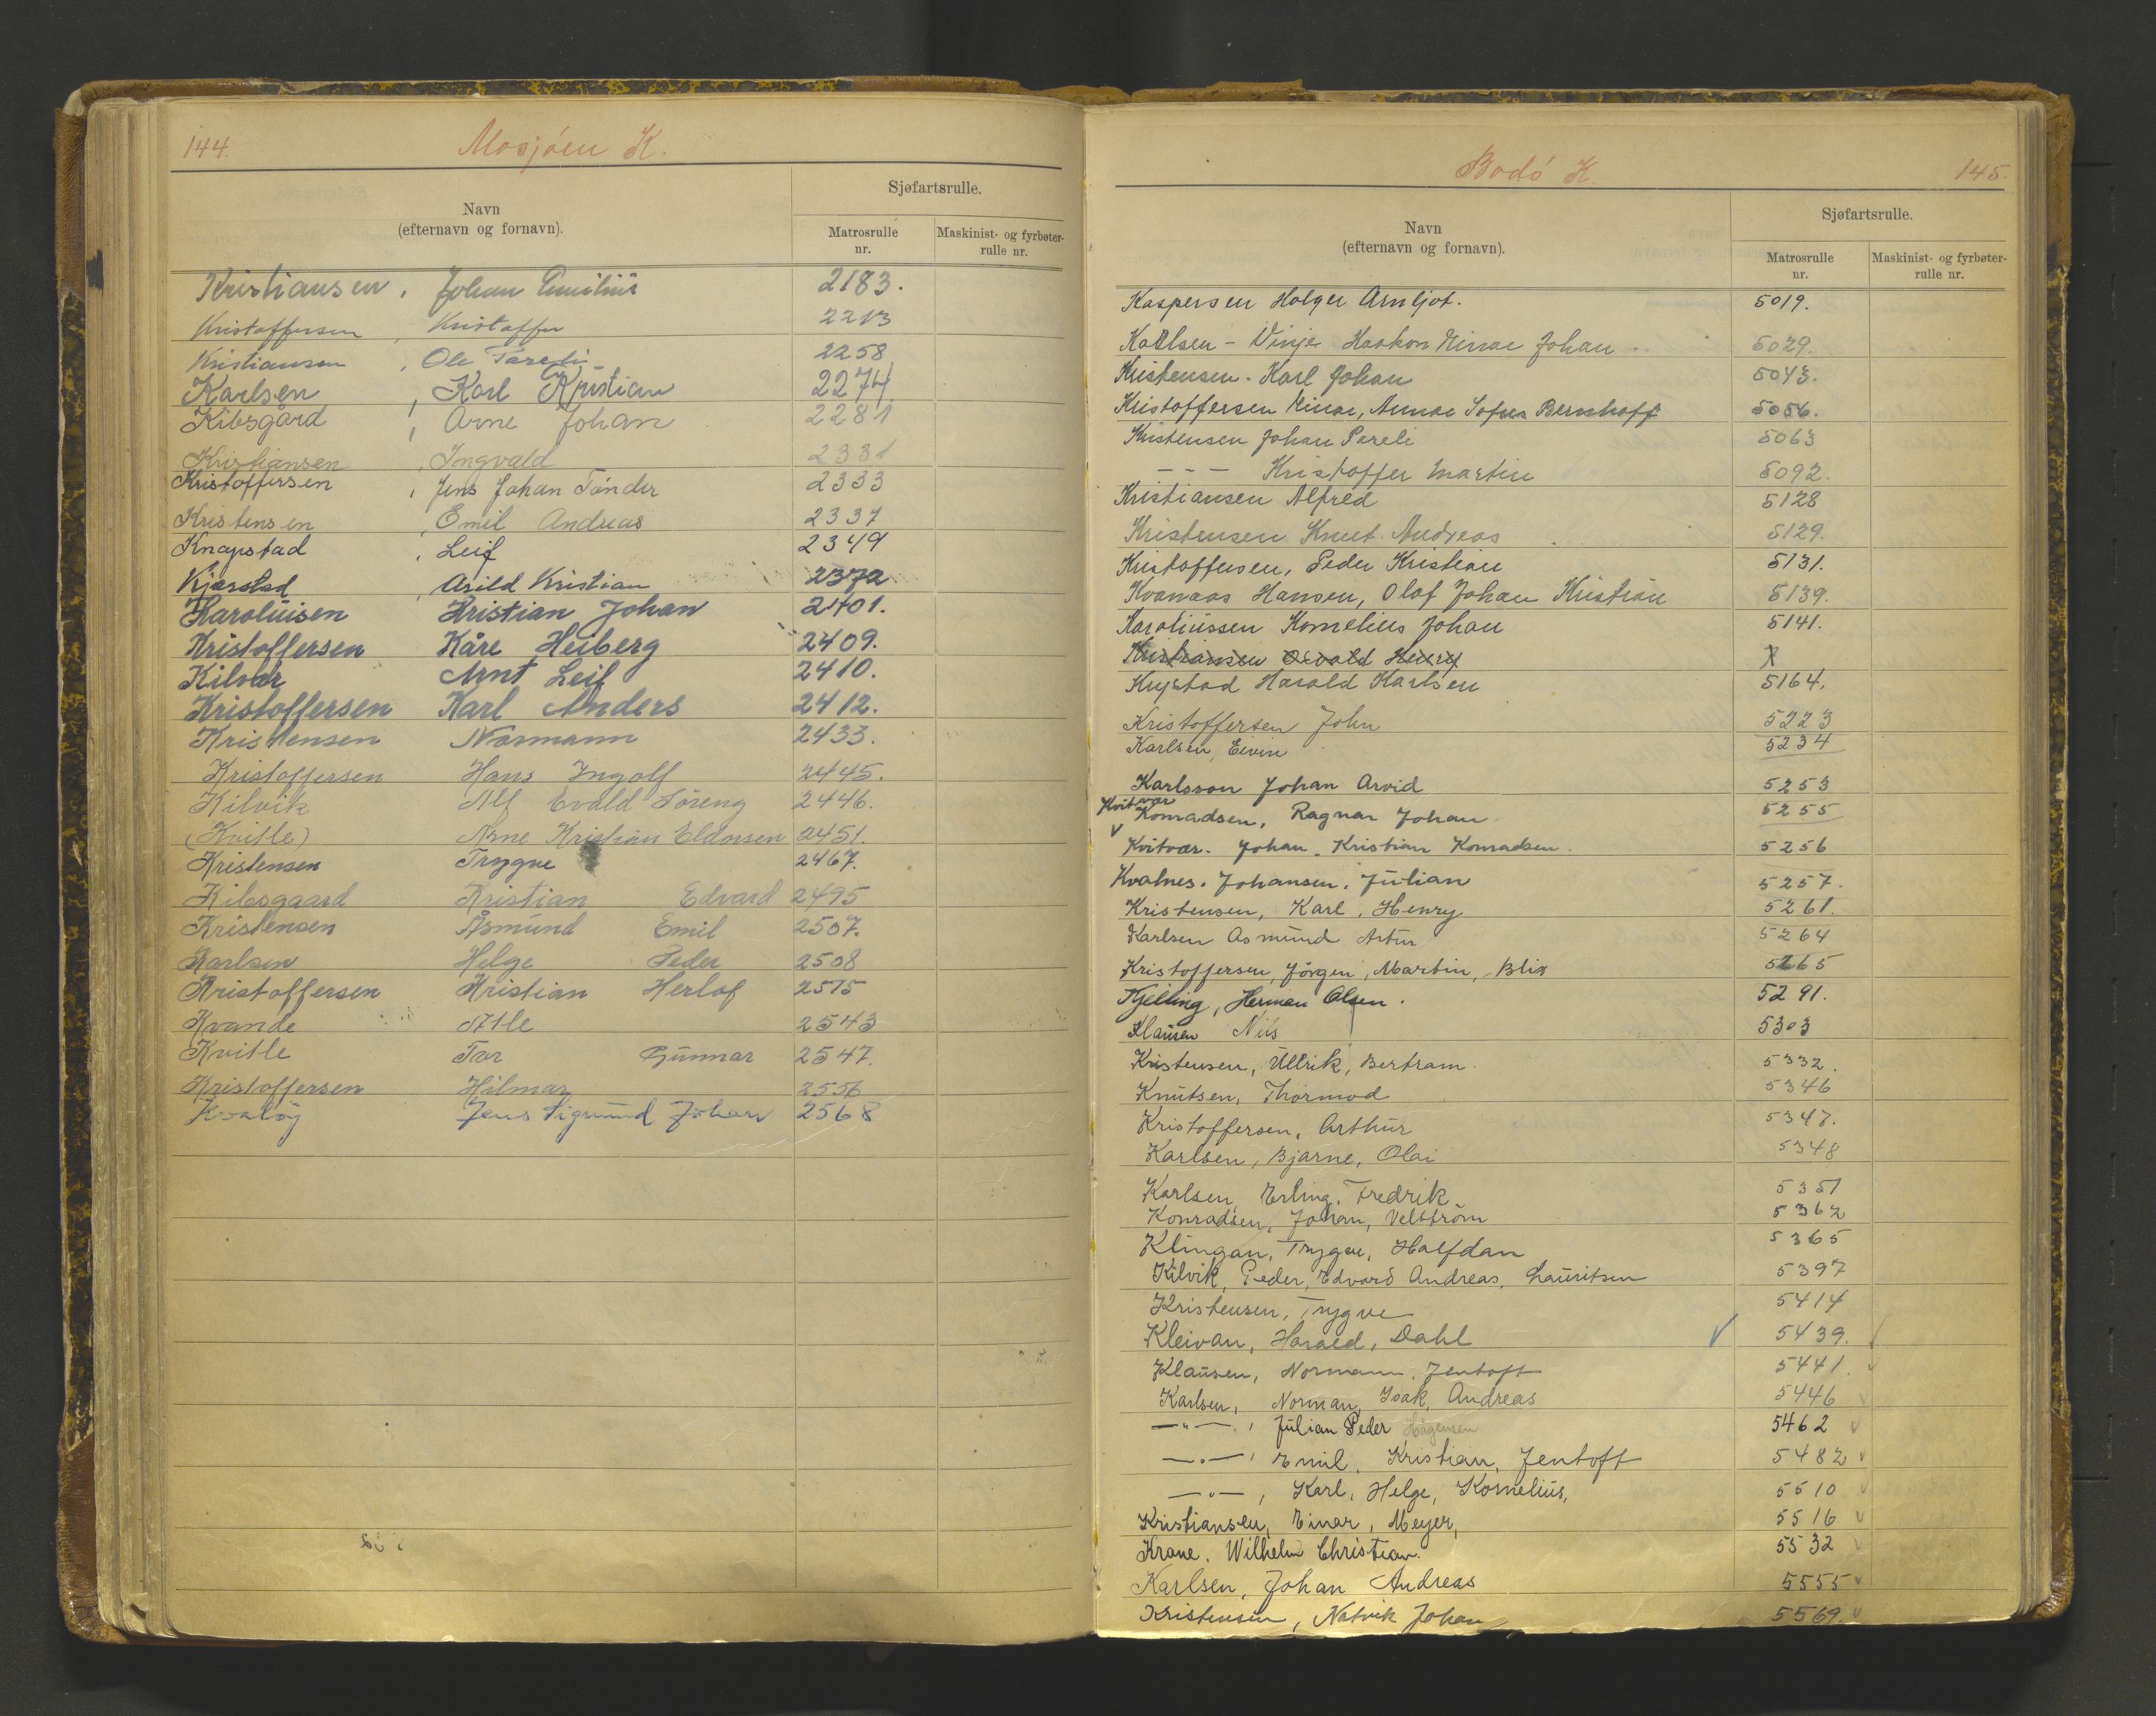 144.
Mosjøen K.
Navn
(efternavn og fornavn).
Sjøfartsrulle.
Matrosrulle nr.
Maskinist- og fyrbøter-rulle nr.
Kristiansen, Johan Emilius 2183.
Kristoffersen, Kristoffer 2213
Kristiansen, Ole Tareli 2258
Karlsen, Karl Kristian 2274
Kibsgård, Arne Johan 2281
Kristiansen, Ingvald 2331
Kristoffersen, Jens Johan Tønder 2333
Kristensen, Emil Andreas 2337
Knapstad, Leif 2349
Kjærstad, Arild Kristian 2372
Karoliusen Kristian Johan 2401.
Kristoffersen Kåre Heiberg 2409.
Kilvær Arnt Leif 2410.
Kristoffersen Karl Anders 2412.
Kristensen Normann 2433.
Kristoffersen Hans Ingolf 2445.
Kilvik Alf Evald Søreng 2446.
(Kvitle) Arne Kristian Eldorsen 2451.
Kristensen Trygve 2467.
Kibsgaard Kristian Edvard 2495
Kristensen Åsmund Emil 2507.
Karlsen Helge Peder 2508
Kristoffersen Kristian Herlof 2515
Kvande Atle 2543
Kvitle Tor Gunnar 2547.
Kristoffersen Hilmar 2556
Kvaløy Jens Sigmund Johan 2568
Bodø K.
145.
Navn
(efternavn og fornavn).
Sjøfartsrulle.
Matrosrulle nr.
Maskinist- og fyrbøter-rulle nr.
Kaspersen Holger Arnljot. 5019.
Karlsen - Vinje Haakon Einar Johan 5029.
Kristensen. Karl Johan 5043.
Kristoffersen Einar, Annar Sofus Bernhoff 5056.
Kristensen Johan Pareli 5063
- - - Kristoffer Martin 5092.
Kristiansen Alfred 5128
Kristensen Knut Andreas 5129.
Kristoffersen, Peder Kristian 5131.
Kvanaas Hansen, Olaf Johan Kristian 5139.
Karoliussen Kornelius Johan 5141.
Kristiansen Osvald Henry X
Krystad Harald Karlsen 5164.
Kristoffersen John 5223
Karlsen, Eivin 5234
Karlsson Johan Arvid 5253
Kvitvær
Konradsen, Ragnar Johan 5255
V Kvitvær. Johan. Kristian Konradsen. 5256
Kvalnes. Johansen. Julian 5257.
Kristensen, Karl, Henry 5261.
Karlsen Asmund Artur 5264
Kristoffersen, Jørgen, Martin, Blix 5265
Kjelling, Herman Olsen. 5291.
Klausen Nils 5303
Kristensen, Ullrik, Bertram. 5332.
Knutsen, Thormod 5346
Kristoffersen, Arthur 5347.
Karlsen, Bjarne, Olai 5348
Karlsen, Erling, Fredrik. 5351
Konradsen, Johan, Velstrøm 5362
Klingan, Trygve, Halfdan 5365
Kilvik, Peder, Edvard Andreas, Lauritsen 5397
Kristensen, Trygve 5414
Kleivan, Harald, Dahl √ 5439.
Klausen, Normann, Jentoft 5441.
Karlsen, Norman, Isak, Andreas 5446
—"—, Julian Peder Hågensen 5462
—"—, Emil, Kristian, Jentoft 5482
—"—, Karl, Helge, Kornelius, 5510
Kristiansen, Einar, Meyer, 5516
Krane. Wilhelm Christian. 5532
Karlsen, Johan Andreas 5555
Kristensen, Natvik Johan 5569.